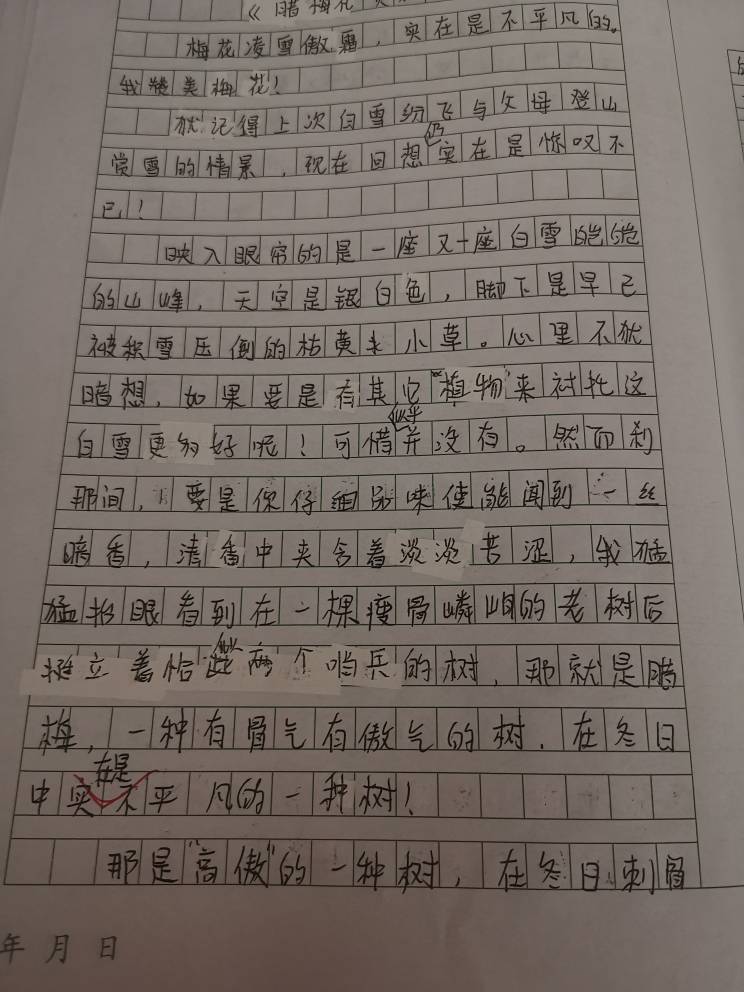 《暗梅花
梅花凌雪傲霜，实在是不平凡的。
我赞美梅花！
犹记得上次白雪纷飞与父母登山
赏雪的情景，现在回想仍实在是惊叹不
已！
映入眼帘的是一座又一座白雪皑皑
的山峰，天空是银白色，脚下是早已
被积雪压倒的枯黄小草。心里不犹
暗想，如果要是有其它“植物”来衬托这
白雪更为好呢！可惜似乎并没有。然而刹
那间，要是你仔细品味便能闻到一丝
暗香，清香中夹含着淡淡苦涩，我猛
猛抬眼看到在一棵瘦骨嶙峋的老树后
挺立着恰似两个哨兵的树，那就是腊
梅，一种有骨气有傲气的树．在冬日
中实在是不平凡的一种树！
那是“高傲”的一种树，在冬日刺骨
年 月 日